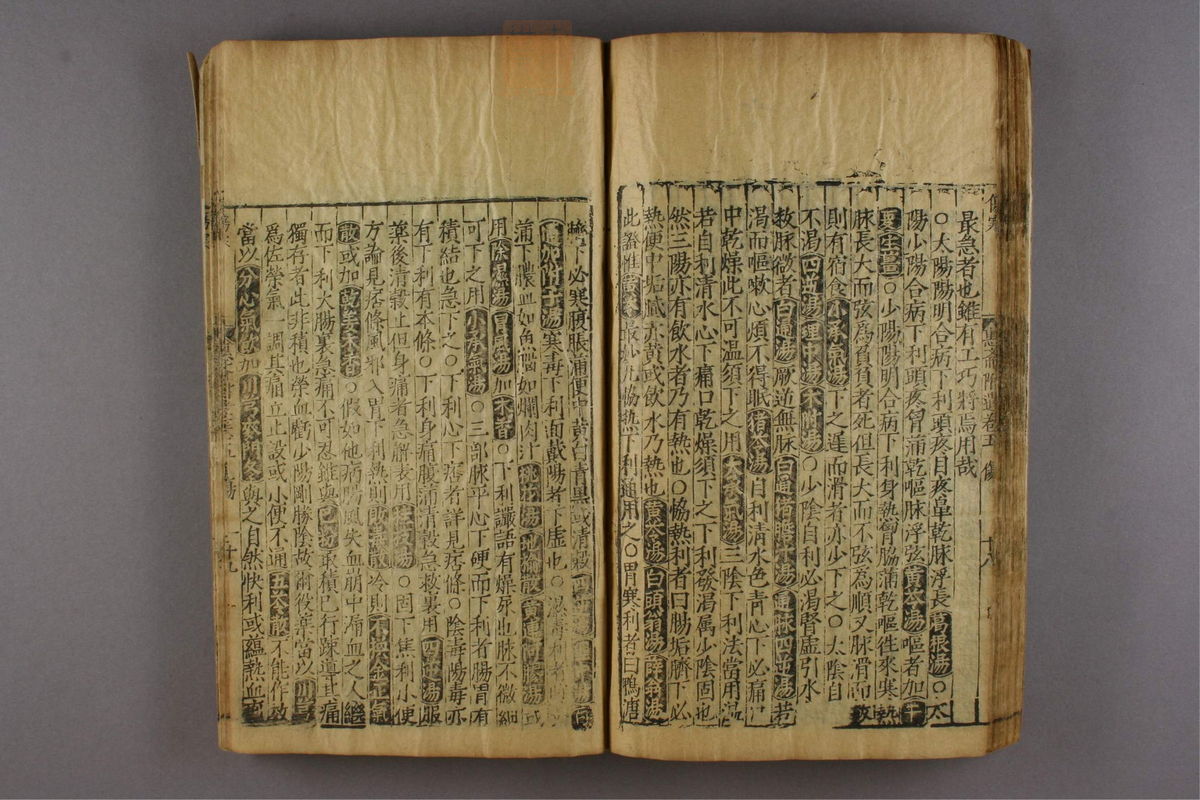 最急者也雖有工巧將焉用哉
○太陽陽明合病下利頭疼目疼鼻乾脉浮長葛根湯○太
陽少陽合病下利頭疼胷滿乾嘔脉浮弦黄芩湯嘔者加半
夏生薑○少陽陽明合病下利身熱胷脇滿乾嘔徃來寒熱
脉長大而弦爲負負者死但長大而不弦為順又脉滑而数
則有宿食小承氣湯下之遲而滑者亦少下之○太陰自
不渴四逆湯理中湯术附湯○少陰自利必渴腎虚引水
救脉微者白通湯厥逆無脉白通猪膽汁湯通脉四逆湯若
渴而嘔嗽心煩不得眠猪苓湯自利清水色青心下必痛口
中乾燥此不可温須下之用大承氣湯三陰下利法當用温
若自利清水心下痛口乾燥須下之下利發渴属少陰固也
然三陽亦有飲水者乃有熱也○協熱利者曰腸垢臍下必
熱便中垢膩赤黄或飲水乃熱也黄芩湯白頭翁湯薛利湯
協熱下利通用之○胃寒利者曰鴨溏
下必寒腹脹滿便中黄白青黒或清穀
加附子湯寒毒下利面戴陽者下虚也○
蒲下膿血如魚腦如爛肉汁桃花湯地榆散黄連阿膠湯或
用除濕湯胃風湯加木香○下利讝語有燥屎也脉不微細
可下之用小承氣湯○三部脉平心下硬而下利有腸胃有
積結也急下之○下利心下痞者詳見痞條○陰毒陽毒亦
有下利有本條○下利身痛腹滿清穀急救裏用四逆湯服
藥後清穀止但身痛者急解表用桂枝湯○固下焦利小便
方論見痞條風邪入胃下利熱則敗毒散冷則不換金正氣
散或加乾姜木香○假如他病陽風失血崩中痛血之人繼
而下利大腸裏急痛不可忍雖與巴豆取積已行疎導其痛
獨存者此非積也榮血虧少陽剛勝陰故爾役藥當以川芎
爲佐榮氣一調其痛立止設或小便不通五苓散不能作效
當以分心氣飲加川芎麥門冬與之自然快利或藴熱血